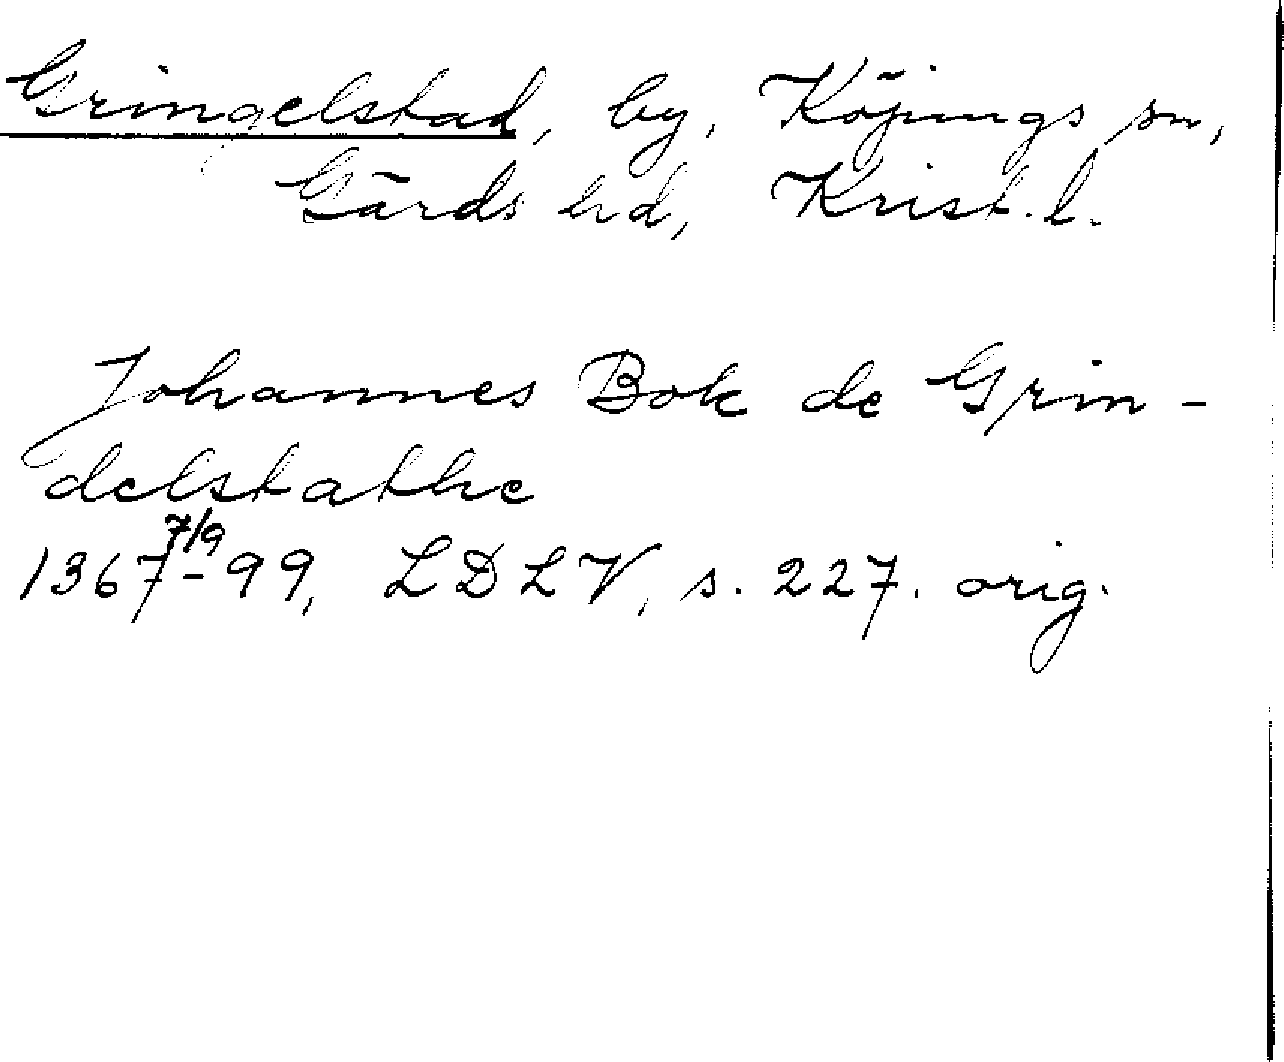 Gringelstad, by, Köpings sn,
Gärds hd, Krist. l.
Johannes Bok de Grin-
delstathe
1367 7/9 - 99, LDLV, s. 227. orig.